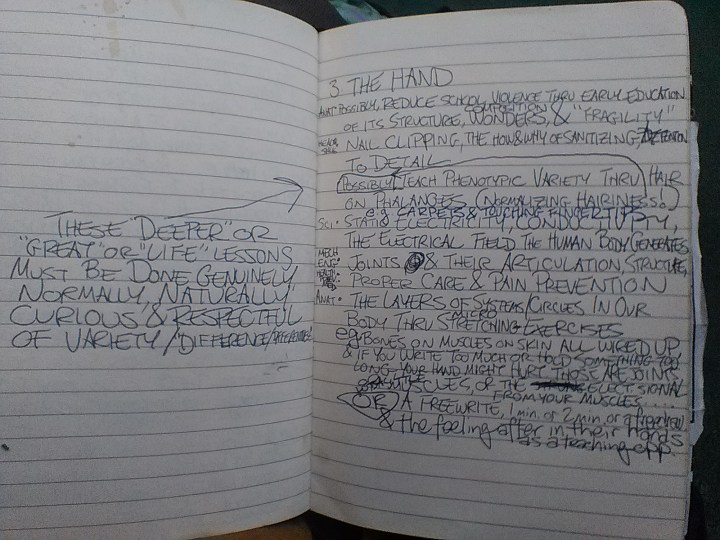 THESE "DEEPER" OR
"GREAT" OR "LIFE" LESSONS
MUST BE DONE GENUINELY
NORMALLY, NATURALLY
CURIOUS & RESPECTFUL
OF VARIETY/DIFFERENCE/
3 THE HAND
ANAT POSSIBLY, REDUCE SCHOOL VIOLENCE THRU EARLY EDUCATION
COMPOSITION
OF ITS STRUCTURE, WONDERS, & "FRAGILITY"
NAIL CLIPPING, THE HOW & WHY OF SANITIZING, ATTENTION
TO DETAIL
POSSIBLY TEACH PHENOTYPIC VARIETY THRU HAIR
ON PHALANGES (NORMALIZING HAIRINESS.)
e.g. CARPETS & TOUCHING FINGERTIPS
SCI • STATIC ELECTRICITY, CONDUCTIVITY,
THE ELECTRICAL FIELD THE HUMAN BODY GENERATES
MECH
ENG • JOINTS & THEIR ARTICULATION, STRUCTURE,
HEALTH
PROPER CARE & PAIN PREVENTION
ANAT • THE LAYERS OF SYSTEMS/CIRCLES IN OUR
MICRO
BODY THRU STRETCHING EXERCISES
eg BONES ON MUSCLES ON SKIN ALL WIRED UP
& IF YOU WRITE TOO MUCH OR HOLD SOMETHING TOO
LONG YOUR HAND MIGHT HURT. THOSE ARE JOINTS
MUSCLES, OR THE ELECT. SIGNAL
FROM YOUR MUSCLES....
OR A FREEWRITE, 1 min. or 2 min. of a freedraw
& the feeling after in their hands
as a teaching opp.